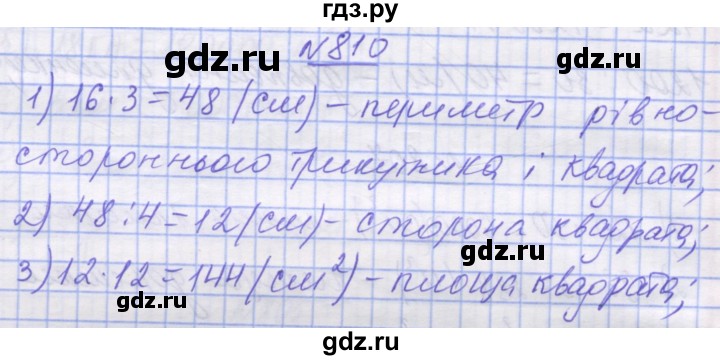 гдз.ру
gdz.ru gdz.ru
№810
1) 16·3=48 (см) – периметр рівно-
gdz.ru gdz.ru
стороннього трикутника і квадрата;
2) 48:4=12 (см) – сторона квадрата;
gdz.ru gdz.ru
3) 12·12=144 (см²) – площа квадрата;
gdz.ru gdz.ru